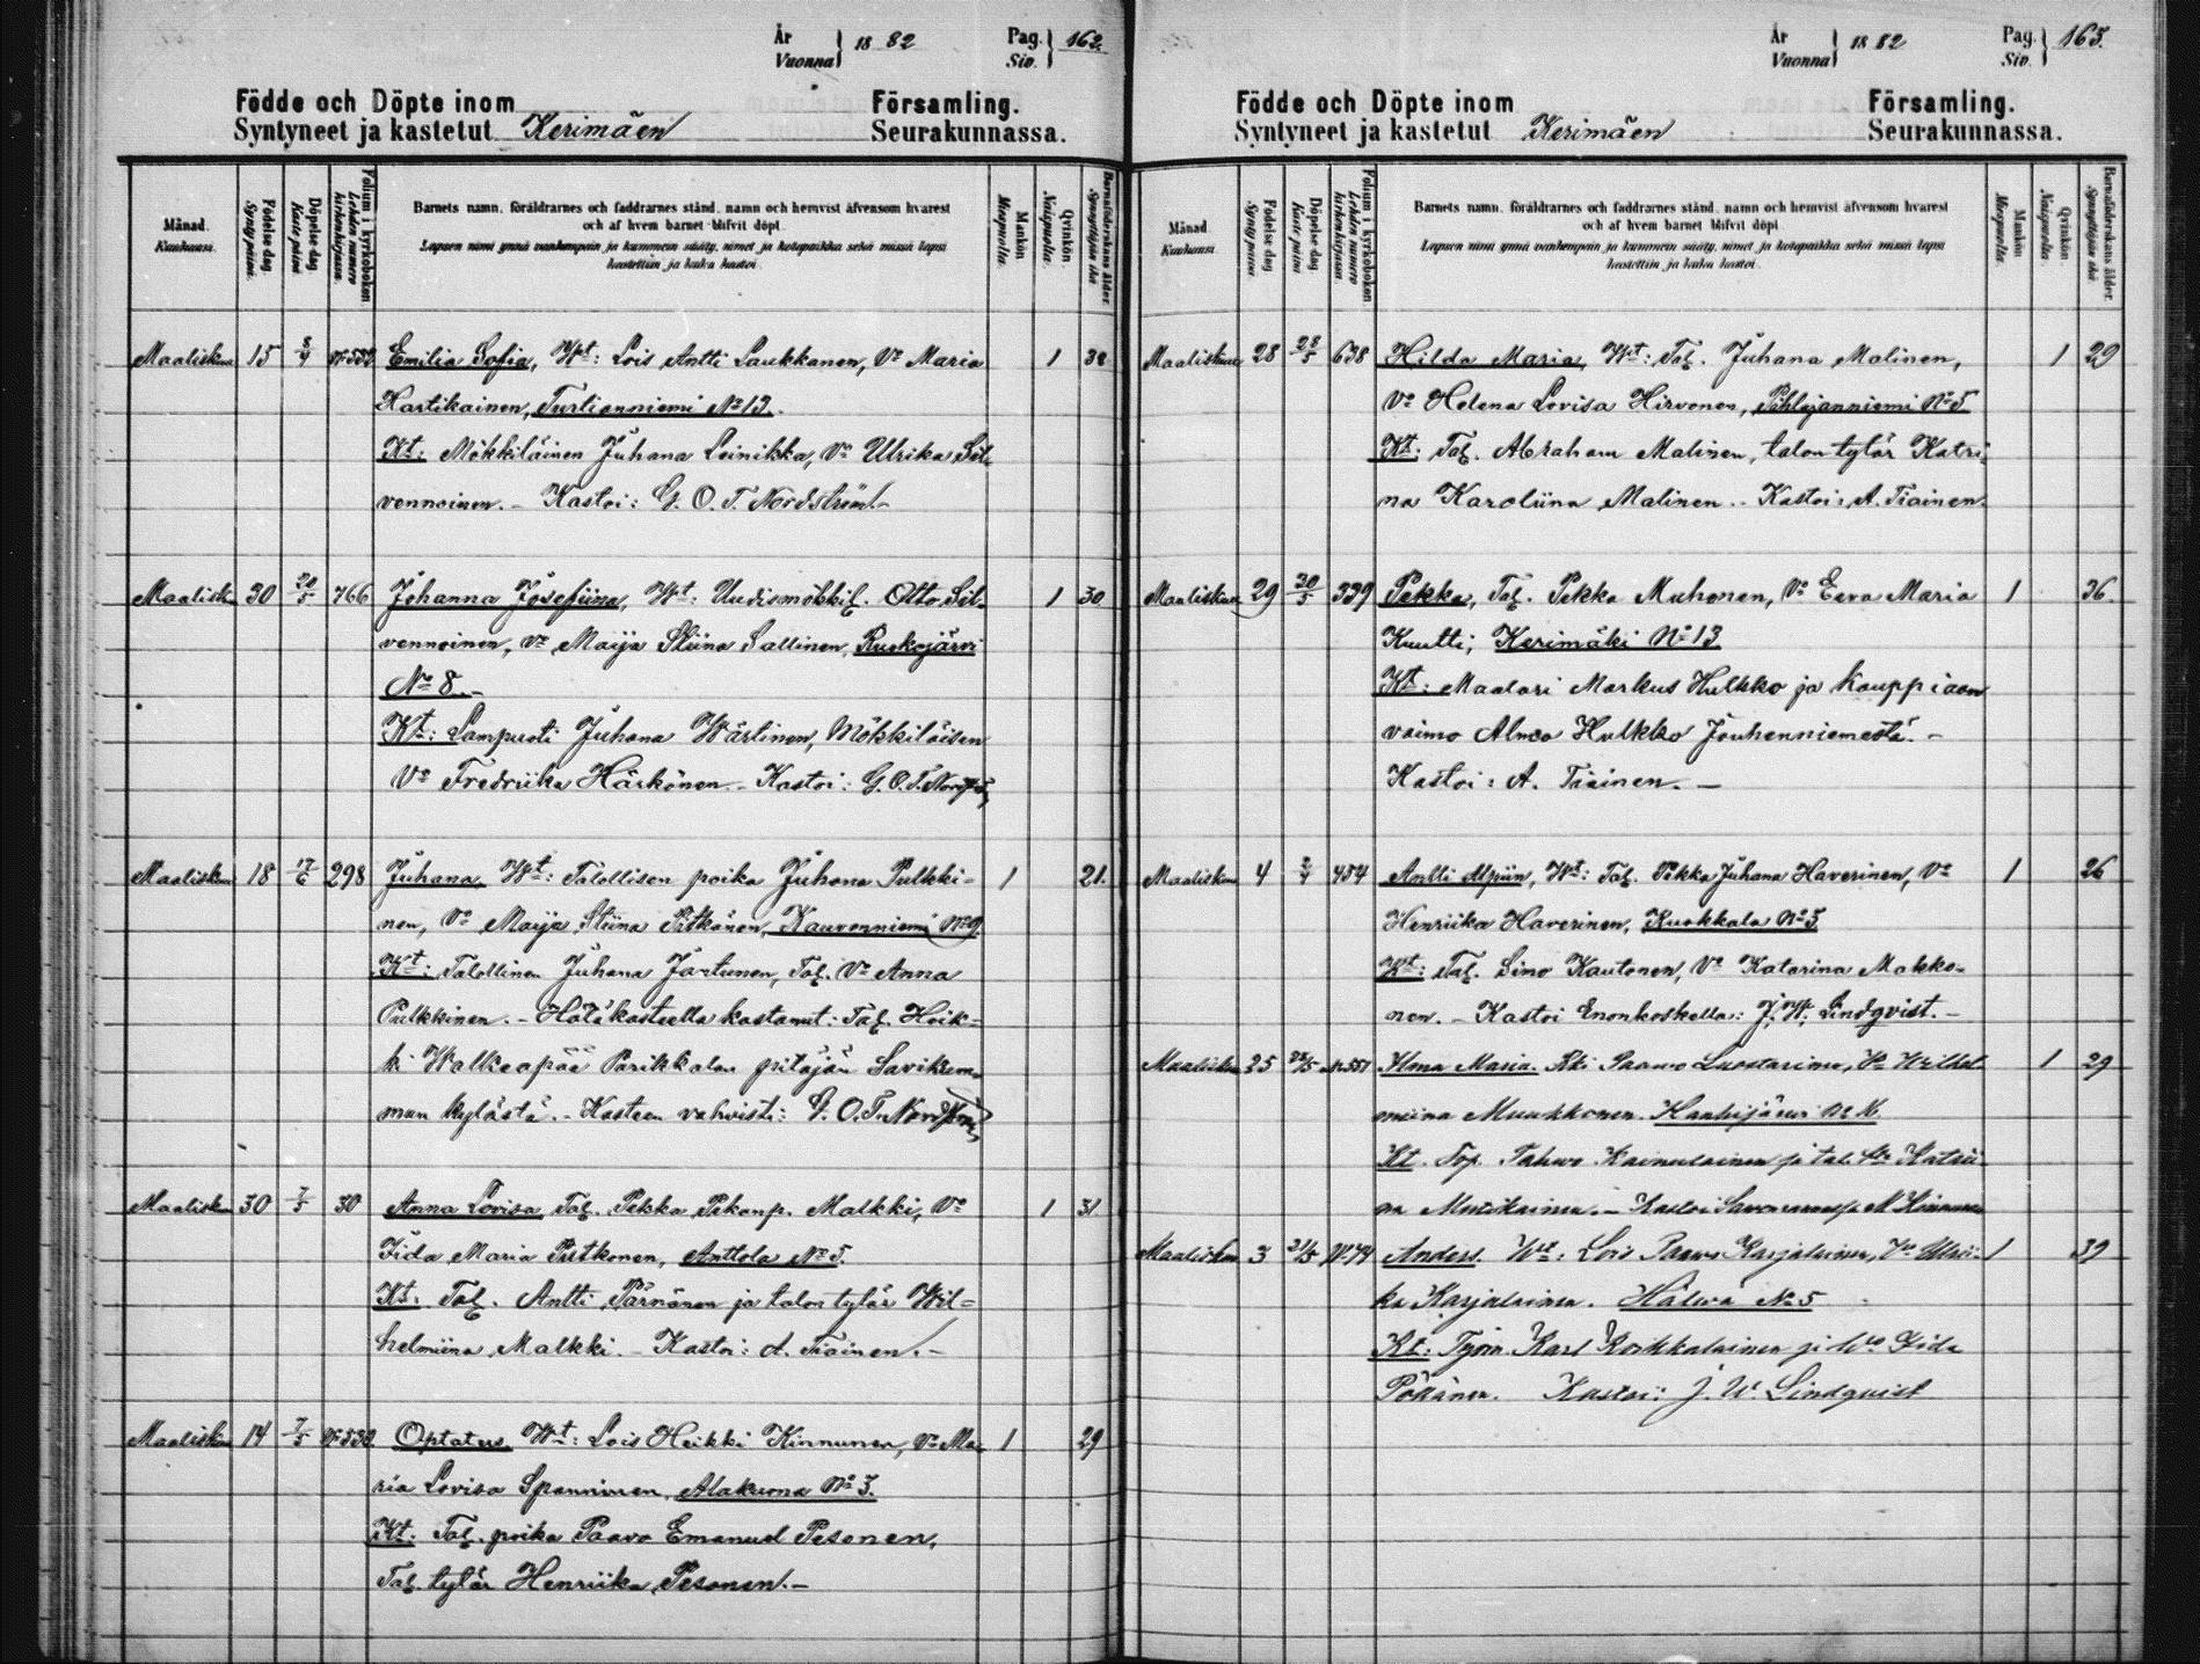 År Vuonna 1882 Pag. Siv. 162.
Födde och Döpte inom Församling.
Syntyneet ja kastetut Kerimäen Seurakunnassa.
Månad. Kuukausi.
Födelse dag Syntypäivä.
Döpelse dag Kaste päivä
Folium i kyrkoboken Lehden numero kirkonkirjassa.
Barnets namn, föräldrarnes och faddrarnes stånd, namn och hemvist äfvensom hvarest
och af hvem barnet blifvit döpt.
Lapsen nimi ynnä vanhempain ja kummein sääty, nimet ja kotopaikka sekä missä lapsi
kastettiin ja kuka kastoi.
Mankön Miespuolta.
Qvinkön. Naispuolta.
Barnföderskans ålder. Synnyttäjän ikä
Maaliskuu 15 8/4 N:533 Emilia Sofia, Wt: Lois Antti Laukkanen, Vo Maria 1 38
Hartikainen, Turtianniemi No 13.
Kt: Mökkiläinen Juhana Leinikka, Vo Ulrika Sil-
vennoinen. – Kastoi: G. O. T. Nordström. –
Maalisk. 30 20/5 766 Johanna Josefiina, Wt: Uudismökkil. Otto Sil- 1 30
vennoinen, Vo Maija Stiina Sallinen, Ruokojärvi
No 8. –
Kt: Lampuoti Juhana Wärtinen, Mökkiläisen
Vo Fredriika Härkönen. – Kastoi: G. O. T. Nordst.
Maaliskuu 18 17/6 298 Juhana Wt: Talollisen poika Juhana Pulkki- 1 21.
nen, Vo Maija Stiina Pitkänen, Kauvonniemi No 9.
Kt: Talollinen Juhana Jortunen, Tal. Vo Anna
Pulkkinen. – Hätäkasteella kastanut: Tal. Heik-
ki Walkeapää Parikkalan pitäjän Savikum-
mun kylästä. – Kasteen vahvisti: G. O. T. Nordström
Maaliskuu 30 7/5 30 Anna Lovisa Tal. Pekka Pekanp. Malkki, Vo 1 31
Iida Maria Pitkonen, Anttola No 5.
Kt: Tal. Antti Pärnänen ja talon tytär Wil-
helmiina Malkki. – Kastoi: A. Tiainen. –
Maaliskuu 14 7/5 N:330 Optatus Wt: Lois Heikki Kinnunen, Vo Ma- 1 29
ria Lovisa Spänninen, Alakuona No 3.
Kt: Tal. poika Paavo Emanuel Pesonen,
Tal. tytär Henriika Pesonen. –
År Vuonna 1882 Pag. Siv. 163.
Födde och Döpte inom Församling.
Syntyneet ja kastetut Kerimäen Seurakunnassa.
Månad Kuukausi
Födelse dag Syntypäivä
Döpelse dag Kaste päivä
Folium i kyrkoboken Lehden numero kirkonkirjassa.
Barnets namn, föräldrarnes och faddrarnes stånd, namn och hemvist äfvensom hvarest
och af hvem barnet blifvit döpt
Lapsen nimi ynnä vanhempain ja kummein sääty, nimet ja kotopaikka sekä missä lapsi
kastettiin ja kuka kastoi.
Mankön Miespuolta.
Qvinkön. Naispuolta
Barnföderskans ålder. Synnyttäjän ikä
Maaliskuu 28 28/5 638 Hilda Maria, Wt: Tal. Juhana Malinen, 1 29
Vo Helena Lovisa Hirvonen, Pihlajanniemi No 5
Kt: Tal. Abraham Malinen, talon tytär Katri-
na Karoliina Malinen. – Kastoi: A. Tiainen.
Maaliskuu 29 30/5 339 Pekka, Tal. Pekka Muhonen, Vo Eeva Maria 1 36.
Kuutti; Kerimäki No 13.
Kt: Maalari Markus Hulkko ja kauppiaan
vaimo Alma Hulkko Jouhenniemestä. –
Kastoi: A. Tiainen. –
Maaliskuu 4 2/4 454 Antti Alpiin, Wt: Tal. Pekka Juhana Haverinen, Vo 1 26
Henriika Haverinen, Ruokkala No 5
Kt: Tal. Simo Kautonen, Vo Katarina Makko-
nen. – Kastoi Enonkoskella: J. W. Lindqvist. –
Maaliskuu 25 28/5 N:551 Alma Maria. Paavo Luostarinen, Vo Wilhel- 1 29
miina Muukkonen. Kanhijärvi No 16
Kt. Tahvo Kainulainen ja tal. Katrii-
na Mustikainen. – Kastoi M Kinnunen
Maaliskuu 3 21/5 N:44 Anders. Wt: Lois Paavo Karjalainen, Vo Ulrii- 1 39
ka Karjalainen. Hälvä No 5
Kt: Työm. Karl Koikkalainen ja Vo Iida
Pöllänen. Kastoi: J. W. Lindqvist